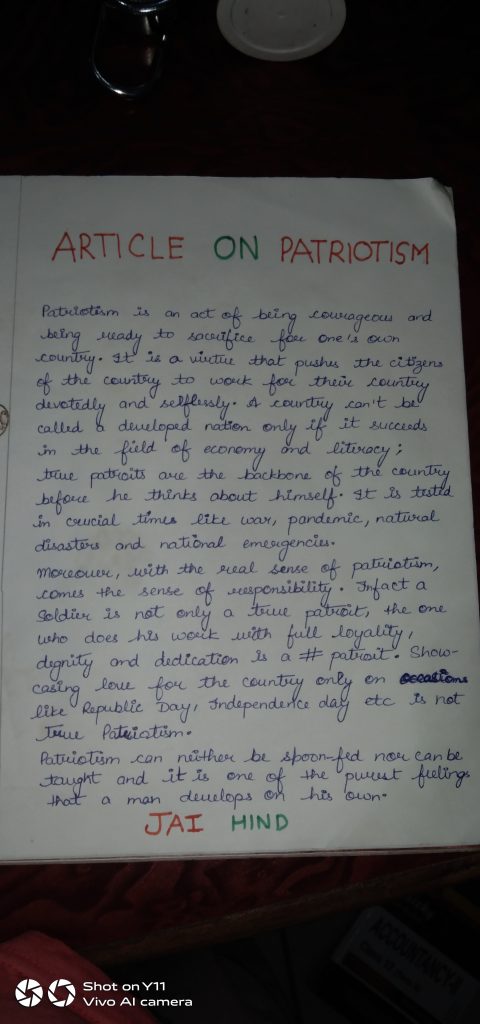 ARTICLE ON PATRIOTISM
Patriotism is an act of being courageous and
being ready to sacrifice for one's own
country. It is a virtue that pushes the citizens
of the country to work for their country
devotedly and selflessly. A country can't be
called a developed nation only if it succeeds
in the field of economy and literacy;
true patroits are the backbone of the country
before he thinks about himself. It is tested
in crucial times like war, pandemic, natural
disasters and national emergencies.
Moreover, with the real sense of patriotism,
comes the sense of responsibility. Infact a
Soldier is not only a true patroit, the one
who does his work with full loyality,
dignity and dedication is a # patroit. Show-
casing love for the country only on occasions
like Republic Day, Independence day etc is not
true Patriotism.
Patriotism can neither be spoon-fed nor can be
taught and it is one of the purest feelings
that a man develops on his own.
JAI HIND
ACCOUNTANCY-II
Shot on Y11
Vivo AI camera